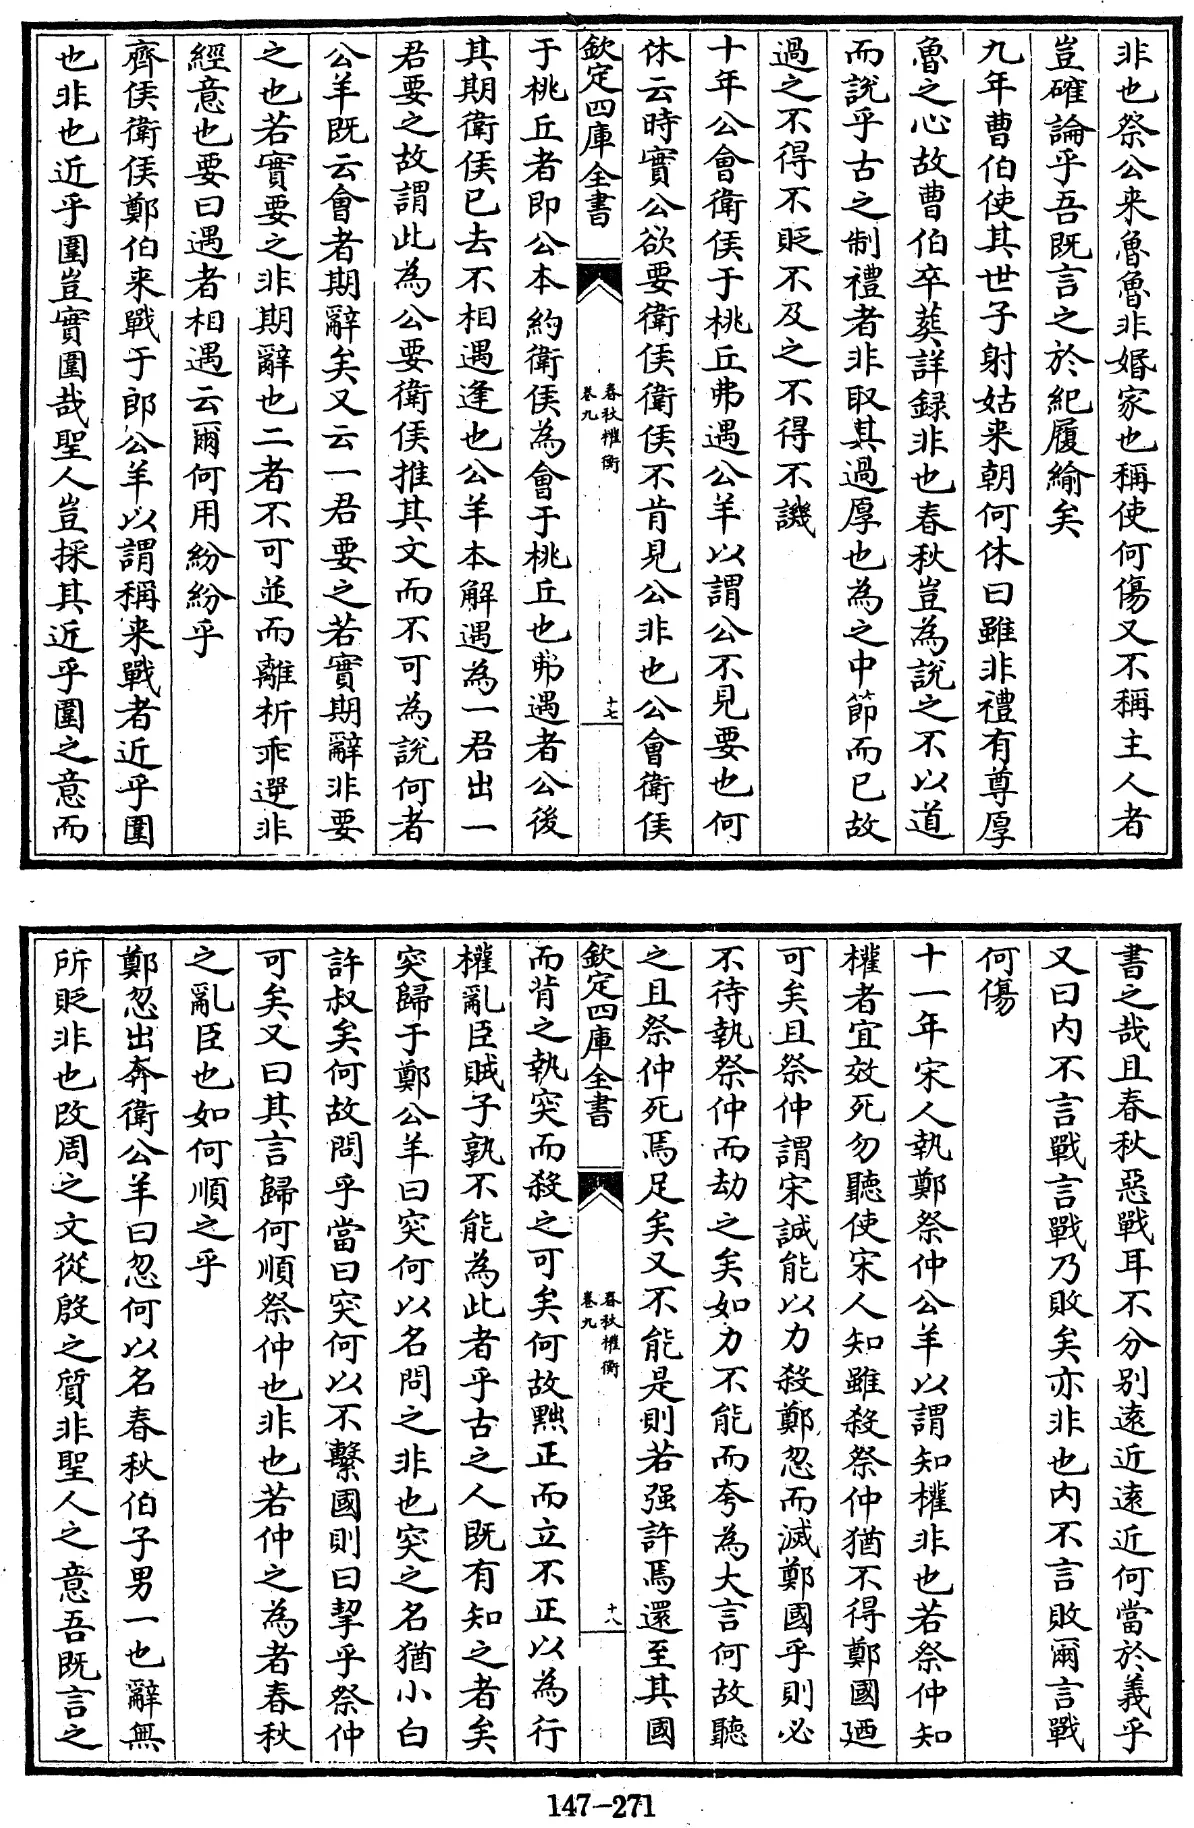 非也祭公来魯魯非婚家也稱使何傷又不稱主人者
豈確論乎吾既言之於紀履緰矣
九年曹伯使其世子射姑来朝何休曰雖非禮有尊厚
魯之心故曹伯卒葬詳録非也春秋豈為説之不以道
而説乎古之制禮者非取其過厚也為之中節而已故
過之不得不貶不及之不得不譏
十年公會衛侯于桃丘弗遇公羊以謂公不見要也何
休云時實公欲要衛侯衛侯不肯見公非也公會衛侯
欽定四庫全書
春秋權衡
卷九
十七
于桃丘者即公本約衛侯為會于桃丘也弗遇者公後
其期衛侯已去不相遇逢也公羊本解遇為一君出一
君要之故謂此為公要衛侯推其文而不可為説何者
公羊既云會者期辭矣又云一君要之若實期辭非要
之也若實要之非期辭也二者不可並而離析乖逕非
經意也要曰遇者相遇云爾何用紛紛乎
齊侯衛侯鄭伯来戰于郎公羊以謂稱来戰者近乎圍
也非也近乎圍豈實圍哉聖人豈採其近乎圍之意而
書之哉且春秋惡戰耳不分別逺近逺近何當於義乎
又曰内不言戰言戰乃敗矣亦非也内不言敗爾言戰
何傷
十一年宋人執鄭祭仲公羊以謂知權非也若祭仲知
權者宜效死勿聽使宋人知雖殺祭仲猶不得鄭國廼
可矣且祭仲謂宋誠能以力殺鄭忽而滅鄭國乎則必
不待執祭仲而劫之矣如力不能而夸為大言何故聽
之且祭仲死焉足矣又不能是則若强許焉還至其國
欽定四庫全書
春秋權衡
卷九
十八
而背之執突而殺之可矣何故黜正而立不正以為行
權亂臣賊子孰不能為此者乎古之人既有知之者矣
突歸于鄭公羊曰突何以名問之非也突之名猶小白
許叔矣何故問乎當曰突何以不繫國則曰挈乎祭仲
可矣又曰其言歸何順祭仲也非也若仲之為者春秋
之亂臣也如何順之乎
鄭忽出奔衛公羊曰忽何以名春秋伯子男一也辭無
所貶非也改周之文從殷之質非聖人之意吾既言之
147-271